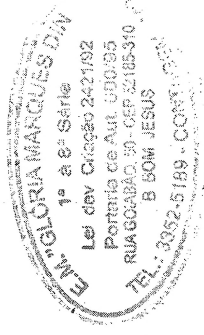 E.M. "GLÓRIA MARQUES DINIZ"
1ª a 8ª Série
Lei dev Criação 2421/92
Portaria de Aut. 000/95
RUA GOABÃO, 50 - CEP 32185-310
B BOM JESUS
TEL.: 3352-5189 - CONT